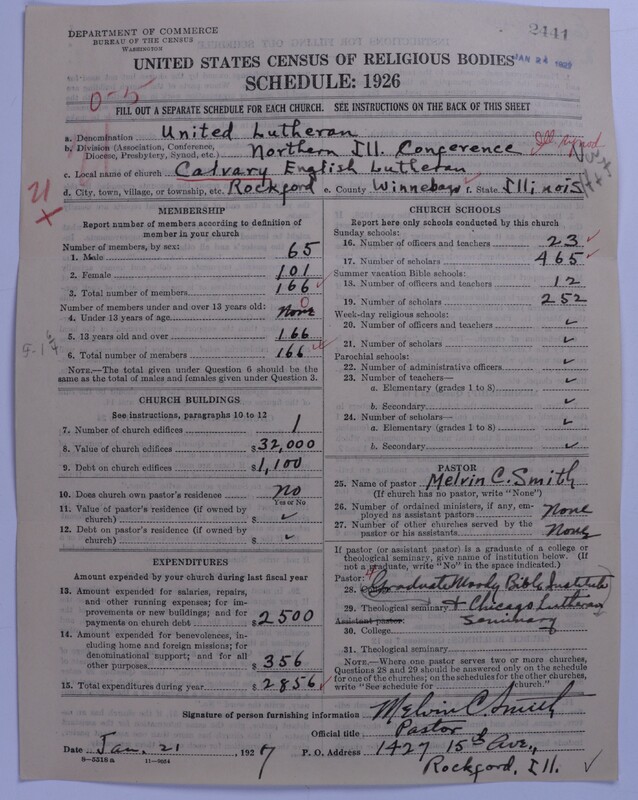 DEPARTMENT OF COMMERCE
BUREAU OF THE CENSUS
WASHINGTON
2441
JAN 24 1927
UNITED STATES CENSUS OF RELIGIOUS BODIES
SCHEDULE: 1926
0-5
FILL OUT A SEPARATE SCHEDULE FOR EACH CHURCH. SEE INSTRUCTIONS ON THE BACK OF THIS SHEET
a. Denomination United Lutheran
b. Division (Association, Conference, Diocese, Presbytery, Synod, etc.) Northern Ill. Conference Ill. Synod
c. Local name of church Calvary English Lutheran
d. City, town, village, or township, etc. Rockford e. County Winnebago f. State Illinois
21
MEMBERSHIP
Report number of members according to definition of
member in your church
Number of members, by sex:
1. Male 65
2. Female 101
3. Total number of members 166
Number of members under and over 13 years old:
4. Under 13 years of age None 0
5. 13 years old and over 166
6. Total number of members 166
NOTE.—The total given under Question 6 should be the
same as the total of males and females given under Question 3.
CHURCH BUILDINGS
See instructions, paragraphs 10 to 12
7. Number of church edifices 1
8. Value of church edifices $32,000
9. Debt on church edifices $1,100
10. Does church own pastor's residence No
Yes or No
11. Value of pastor's residence (if owned by
church) $ ✓
12. Debt on pastor's residence (if owned by
church) $ ✓
EXPENDITURES
Amount expended by your church during last fiscal year
13. Amount expended for salaries, repairs,
and other running expenses; for im-
provements or new buildings; and for
payments on church debt $2500
14. Amount expended for benevolences, in-
cluding home and foreign missions; for
denominational support; and for all
other purposes $356
15. Total expenditures during year $2856
CHURCH SCHOOLS
Report here only schools conducted by this church
Sunday schools:
16. Number of officers and teachers 23
17. Number of scholars 465
Summer vacation Bible schools:
18. Number of officers and teachers 12
19. Number of scholars 252
Week-day religious schools:
20. Number of officers and teachers ✓
21. Number of scholars ✓
Parochial schools:
22. Number of administrative officers ✓
23. Number of teachers—
a. Elementary (grades 1 to 8) ✓
b. Secondary ✓
24. Number of scholars—
a. Elementary (grades 1 to 8) ✓
b. Secondary ✓
PASTOR
25. Name of pastor Melvin C. Smith
(If church has no pastor, write "None")
26. Number of ordained ministers, if any, em-
ployed as assistant pastors None
27. Number of other churches served by the
pastor or his assistants None
If pastor (or assistant pastor) is a graduate of a college or
theological seminary, give name of institution below. (If
not a graduate, write "No" in the space indicated.)
Pastor:
28. Graduate Moody Bible Institute
29. Theological seminary + Chicago Lutheran
Assistant pastor: Seminary
30. College
31. Theological seminary
NOTE.—Where one pastor serves two or more churches,
Questions 28 and 29 should be answered only on the schedule
for one of the churches; on the schedules for the other churches,
write "See schedule for church."
Signature of person furnishing information Melvin C. Smith
Official title Pastor
Date Jan. 21 1927 P. O. Address 1427 15th Ave.,
Rockford, Ill.
8-5318a 11-9024